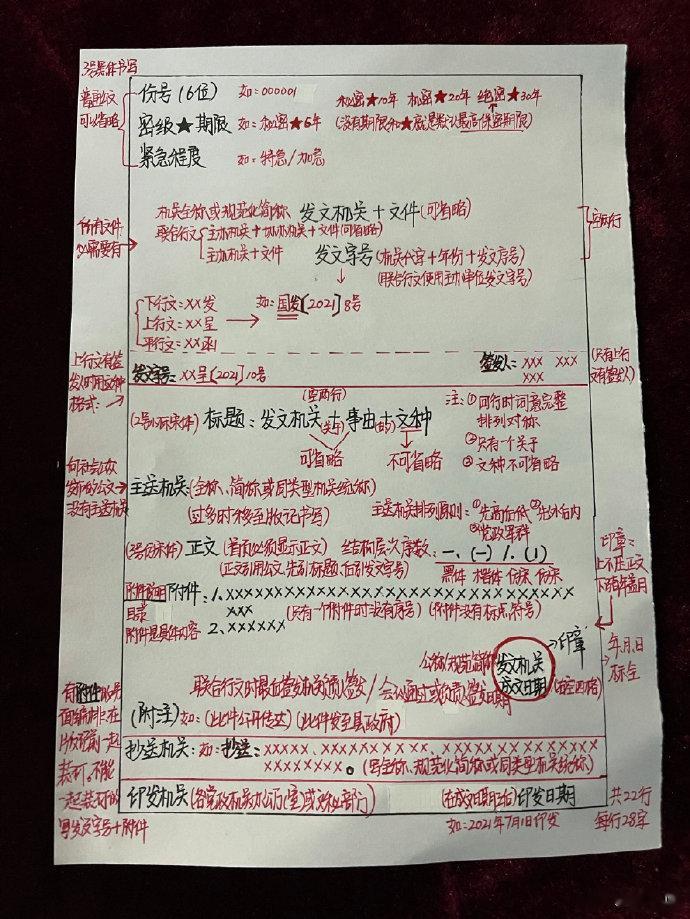 3号黑体书写
普通公文
可以省略
份号(6位) 如:000001
秘密★10年 机密★20年 绝密★30年
密级★期限 如:秘密★6年
(没有期限和★就是默认最高保密期限)
紧急程度 如:特急/加急
所有文件
必需要有
机关全称或规范化简称 发文机关+文件(可省略)
空两行
联合行文
主办机关+协办机关+文件(可省略)
主办机关+文件
发文字号(机关代字+年份+发文序号)
(联合行文使用主办单位发文字号)
下行文=XX发
上行文=XX呈
平行文=XX函
如:国发[2021]8号
上行文有签
发人时用这种
格式:
发文字号:XX呈[2021]10号
签发人:XXX XXX
XXX
(只有上行
文有签发人)
(空两行)
(2号小标宋体)标题:发文机关+事由+文种
(关于) (的)
可省略 不可省略
注:①回行时词意完整
排列对称
②只有一个关于
③文种不可省略
向社会公众
发布的公文
没有主送机关
主送机关:(全称、简称或同类型机关统称)
(过多时移至版记书写)
主送机关排列原则:①先高后低 ②先外后内
③党政军群
(3号仿宋体)正文(首页必须显示正文) 结构层次序数:一、(一) 1. (1)
(正文引用公文,先引标题、后引发文字号)
黑体 楷体 仿宋 仿宋
印章:
上不压正文
下骑年盖月
附件说明
目录
附件是具体内容
附件:1.XXXXXXXXXXXXXXXXXXXXXXXXXXXXX
XXX (只有一个附件时没有序号) (附件没有标点符号)
2.XXXXXX
全称/规范简称
发文机关
成文日期
印章
(右空四格)
年、月、日
标全
联合行文时最后签发机关负责人签发/会议通过或负责人签发日期
有附件的
(附注)如:(此件公开传达)(此件发至县政府)
抄送机关:如:抄送:XXXXX、XXXXXXXXXXXXXXXXXXXXXX
XXXXXXXX。(写全称、规范化简称或同类型机关统称)
版记前一起
装订。不能
一起装订的
写发文字号+附件
印发机关(各党政机关办公厅(室)或文秘部门)
(在成文日期之后)印发日期
如:2021年7月1日印发
共22行
每行28字